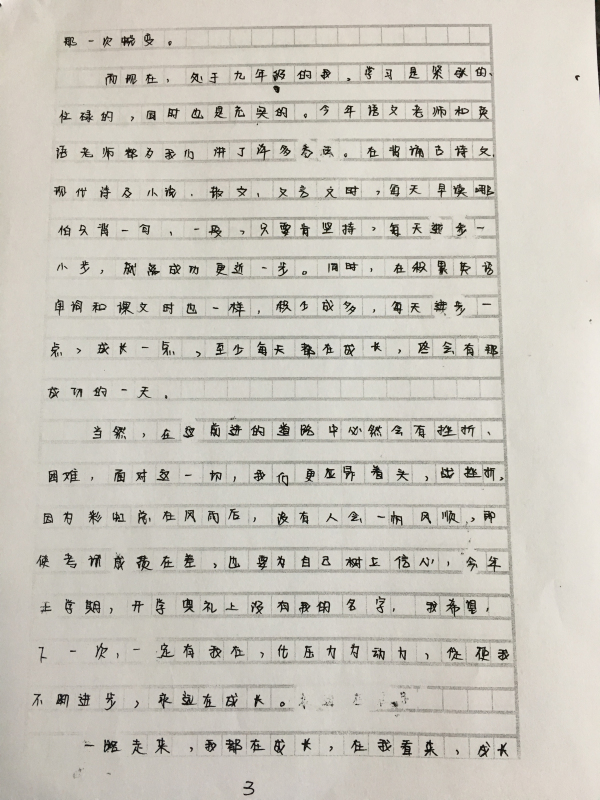 那一次蜕变。
而现在，处于九年级的我，学习是紧张的、
忙碌的，同时也是充实的。今年语文老师和英
语老师都为我们讲了许多方法。在背诵古诗文、
现代诗及小说、散文、文言文时，每天早读哪
怕只背一句，一段，只要肯坚持，每天进步一
小步，就离成功更近一步。同时，在积累英语
单词和课文时也一样，积少成多，每天进步一
点，成长一点，至少每天都在成长，终会有那
成功的一天。
当然，在这前进的道路中必然会有挫折、
困难，面对这一切，我们更应昂着头，战挫折，
因为彩虹总在风雨后，没有人会一帆风顺，即
使考试成绩在差，也要为自己树立信心，今年
上学期，开学典礼上没有我的名字，我希望，
下一次，一定有我在，化压力为动力，促使我
不断进步，永远在成长。
一路走来，我都在成长，在我看来，成长
3